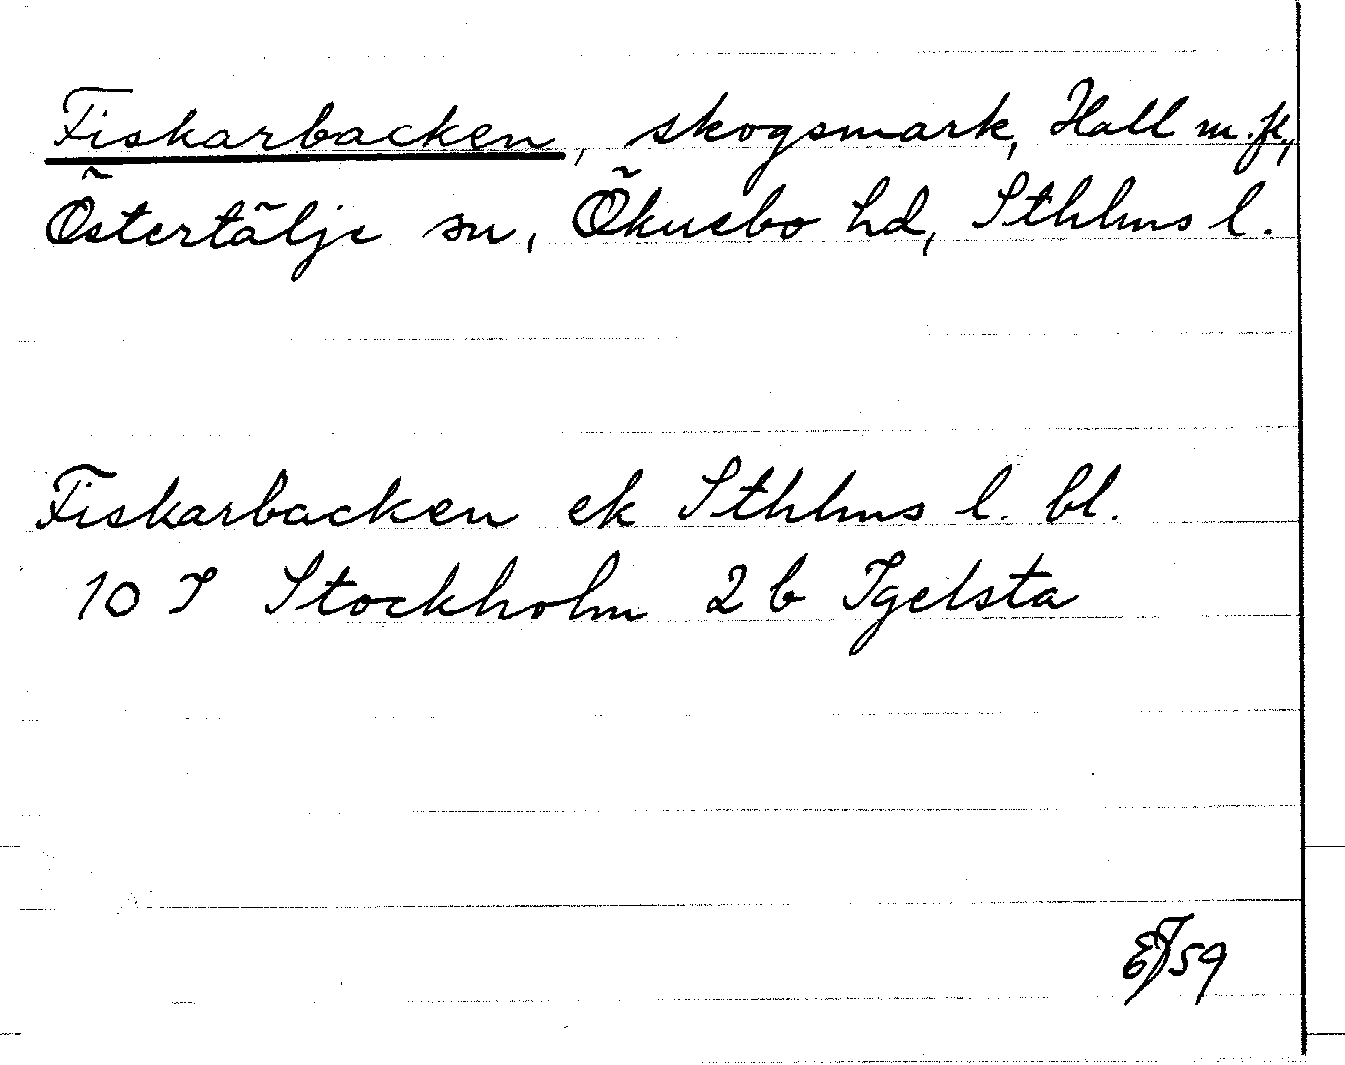 Fiskarbacken, skogsmark, Hall m.fl.,
Östertälje sn, Öknebo hd, Sthlms l.
Fiskarbacken ek Sthlms l. bl.
10 I Stockholm 2 b Igelsta
/59